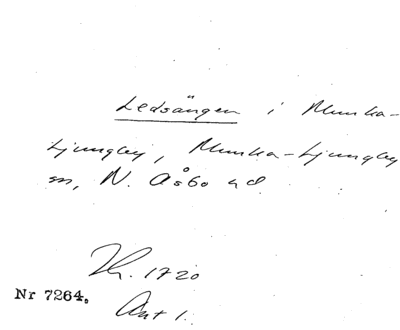 Ledsängen i Munka-
Ljungby, Munka-Ljungby
sn, N. Åsbo hd
Kr. 1720
Nr 7264.
Ant 1.